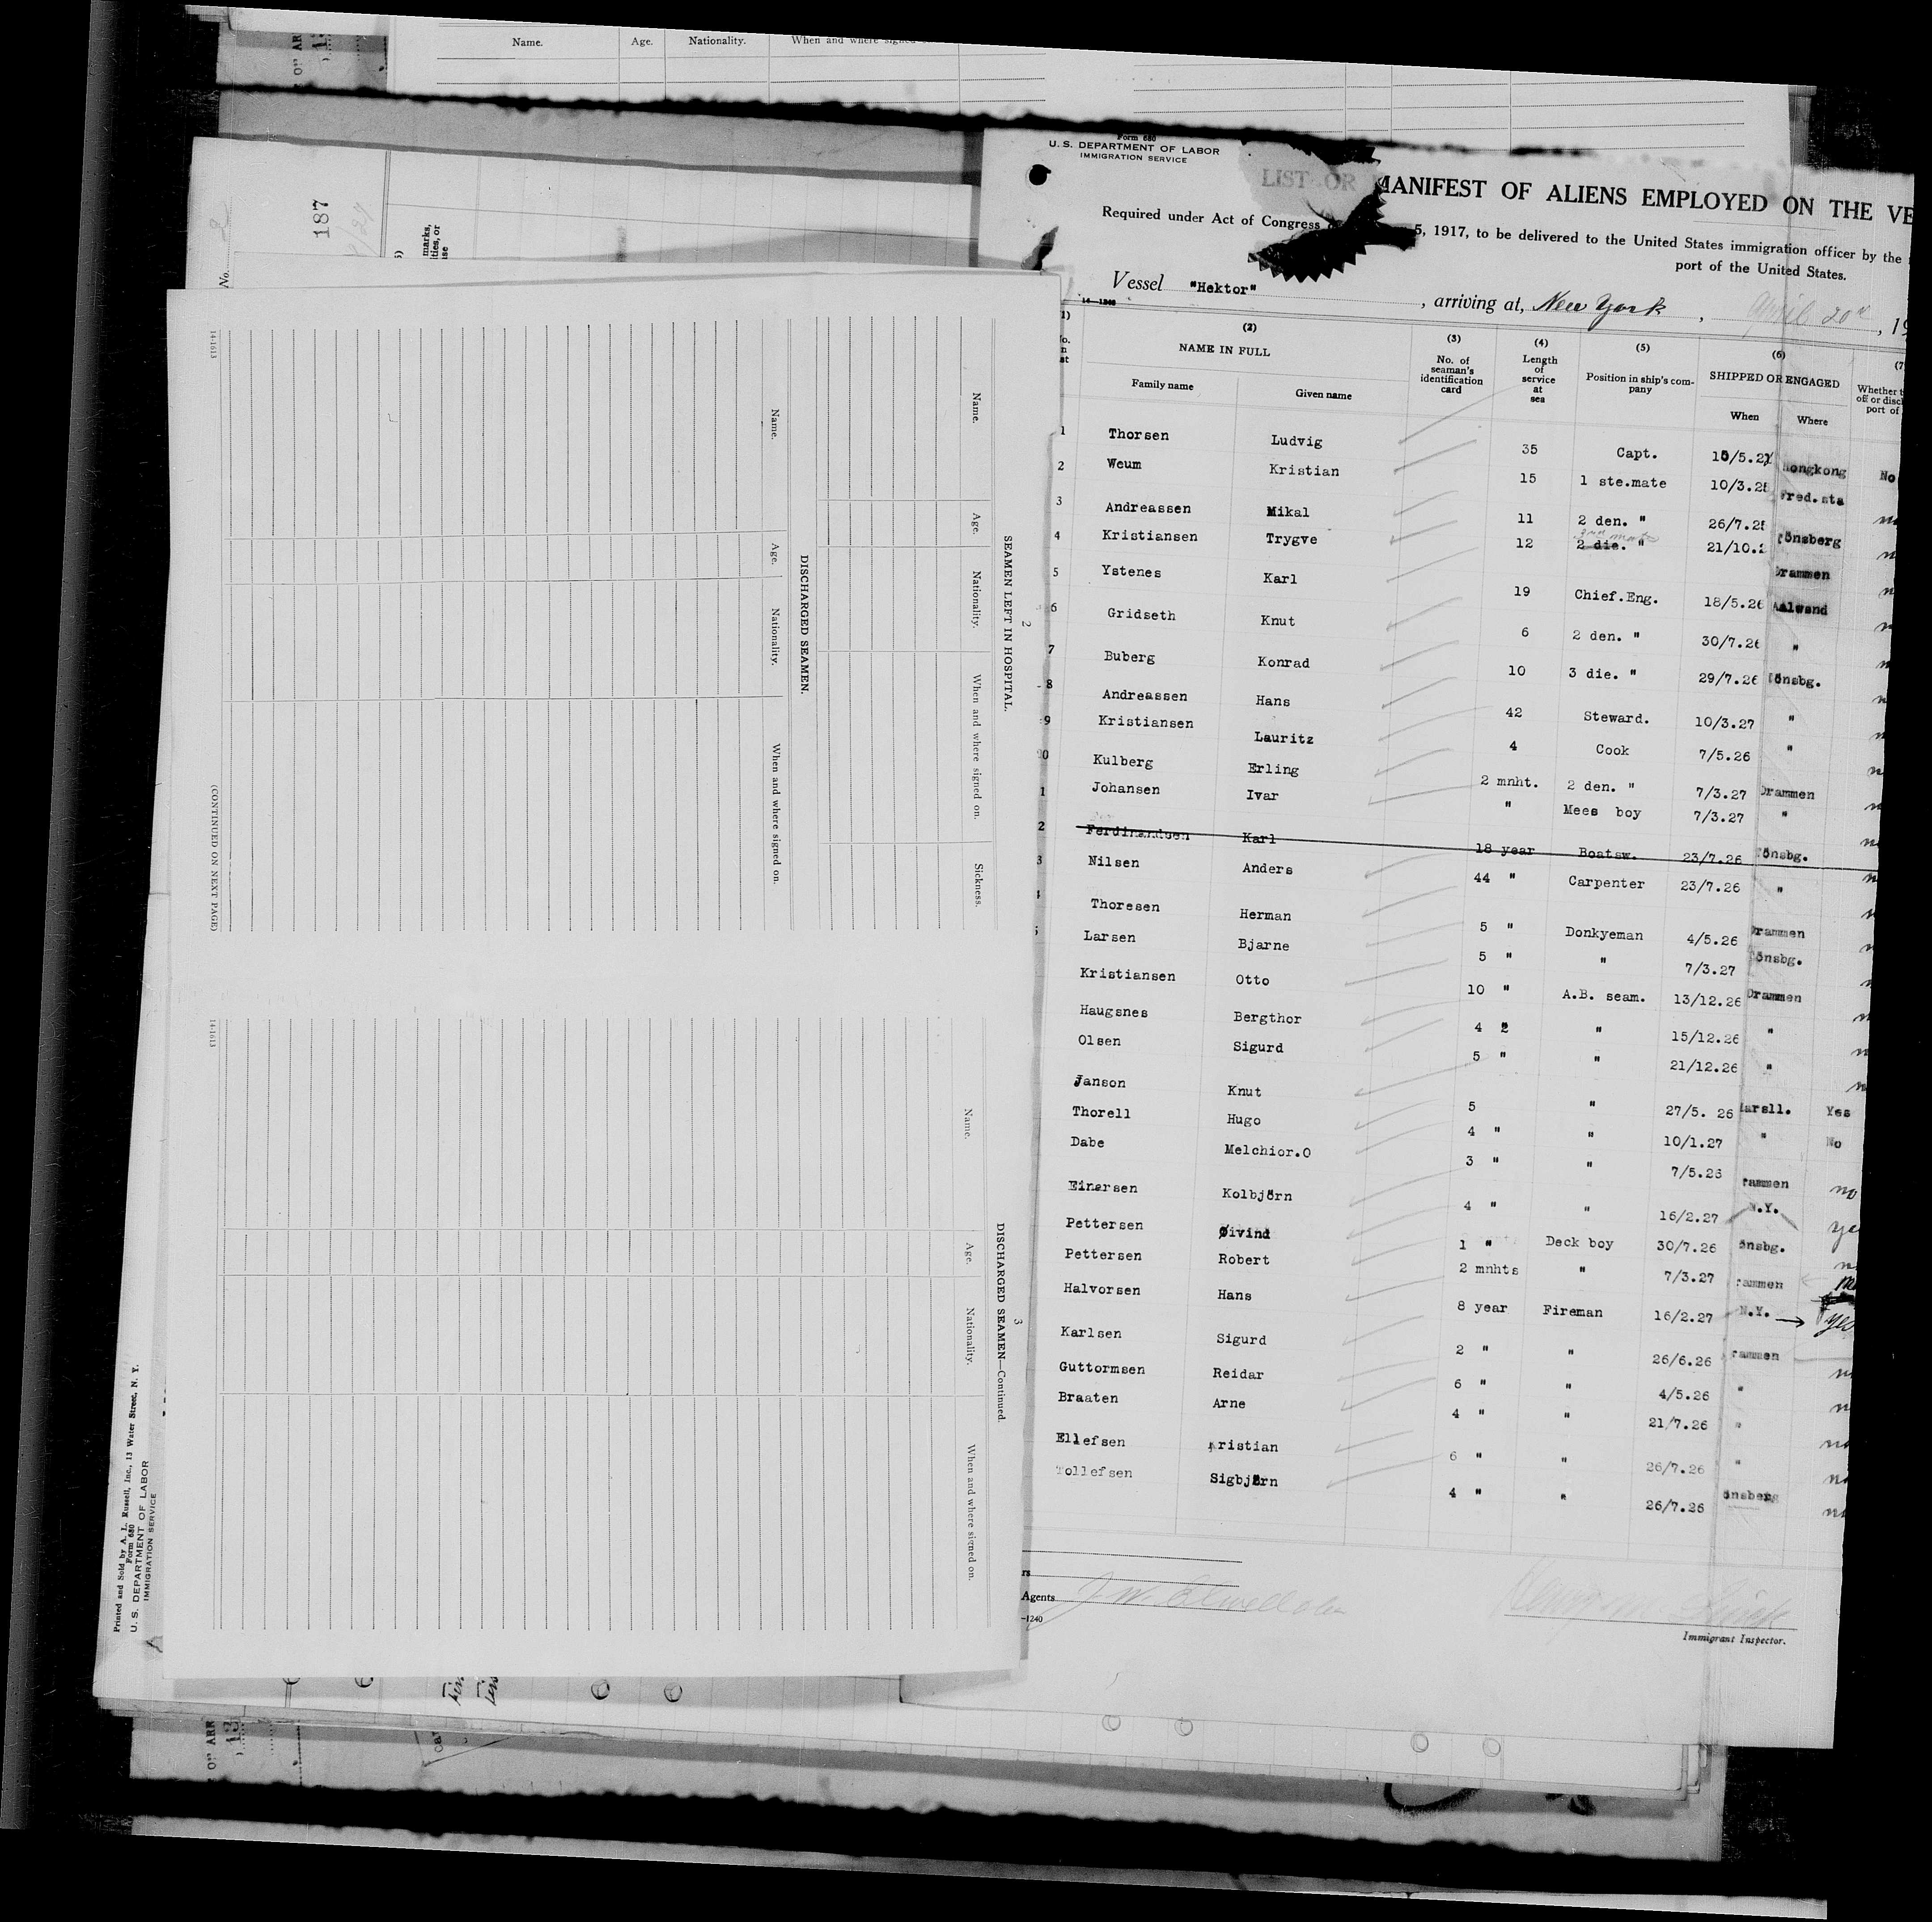 Name. Age. Nationality. When and where signed
187
No.
Form 680
U. S. DEPARTMENT OF LABOR
IMMIGRATION SERVICE
LIST OR MANIFEST OF ALIENS EMPLOYED ON THE VE
Required under Act of Congress 5, 1917, to be delivered to the United States immigration officer by the
port of the United States.
Vessel "Hektor" , arriving at, New York , April 20th , 19
(2) (3) (4) (5) (6) (7
NAME IN FULL No. of seaman's identification card Length of service at sea Position in ship's company SHIPPED OR ENGAGED
Family name Given name When Where
1 Thorsen Ludvig 35 Capt. 10/5.2 Hongkong No
2 Weum Kristian 15 1 ste.mate 10/3.2 Fred.sta
3 Andreassen Mikal 11 2 den. " 26/7.2 Tönsberg
4 Kristiansen Trygve 12 2 die. " 21/10. Drammen
5 Ystenes Karl 19 Chief.Eng. 18/5.26 Aalesund
6 Gridseth Knut 6 2 den. " 30/7.26 "
7 Buberg Konrad 10 3 die. " 29/7.26 Tönsbg.
8 Andreassen Hans 42 Steward. 10/3.27 "
9 Kristiansen Lauritz 4 Cook 7/5.26 "
10 Kulberg Erling 2 mnht. 2 den. " 7/3.27 Drammen
1 Johansen Ivar " Mees boy 7/3.27 "
2 Ferdinandsen Karl 18 year Boatsw. 23/7.26 Tönsbg.
3 Nilsen Anders 44 " Carpenter 23/7.26 "
Thoresen Herman 5 " Donkyeman 4/5.26 Drammen
Larsen Bjarne 5 " " 7/3.27 Tönsbg.
Kristiansen Otto 10 " A.B. seam. 13/12.26 Drammen
Haugsnes Bergthor 4 " " 15/12.26 "
Olsen Sigurd 5 " " 21/12.26 "
Janson Knut 5 " 27/5. 26 Marsll. Yes
Thorell Hugo 4 " " 10/1.27 " No
Dabe Melchior.O 3 " " 7/5.26 rammen no
Einarsen Kolbjörn 4 " " 16/2.27 N.Y. ye
Pettersen Øivind 1 " Deck boy 30/7.26 önsbg.
Pettersen Robert 2 mnhts " 7/3.27 rammen
Halvorsen Hans 8 year Fireman 16/2.27 N.Y. yes
Karlsen Sigurd 2 " " 26/6.26 rammen
Guttormsen Reidar 6 " " 4/5.26 "
Braaten Arne 4 " " 21/7.26 "
Ellefsen Kristian 6 " " 26/7.26 "
Tollefsen Sigbjörn 4 " " 26/7.26 önsberg
Agents
-1240
Immigrant Inspector.
2
SEAMEN LEFT IN HOSPITAL.
Name. Age. Nationality. When and where signed on. Sickness.
DISCHARGED SEAMEN.
Name. Age. Nationality. When and where signed on.
14-1613
(CONTINUED ON NEXT PAGE)
3
DISCHARGED SEAMEN—Continued.
Name. Age. Nationality. When and where signed on.
14-1613
Printed and Sold by A. L. Russell, Inc., 13 Water Street, N. Y.
Form 680
U. S. DEPARTMENT OF LABOR
IMMIGRATION SERVICE